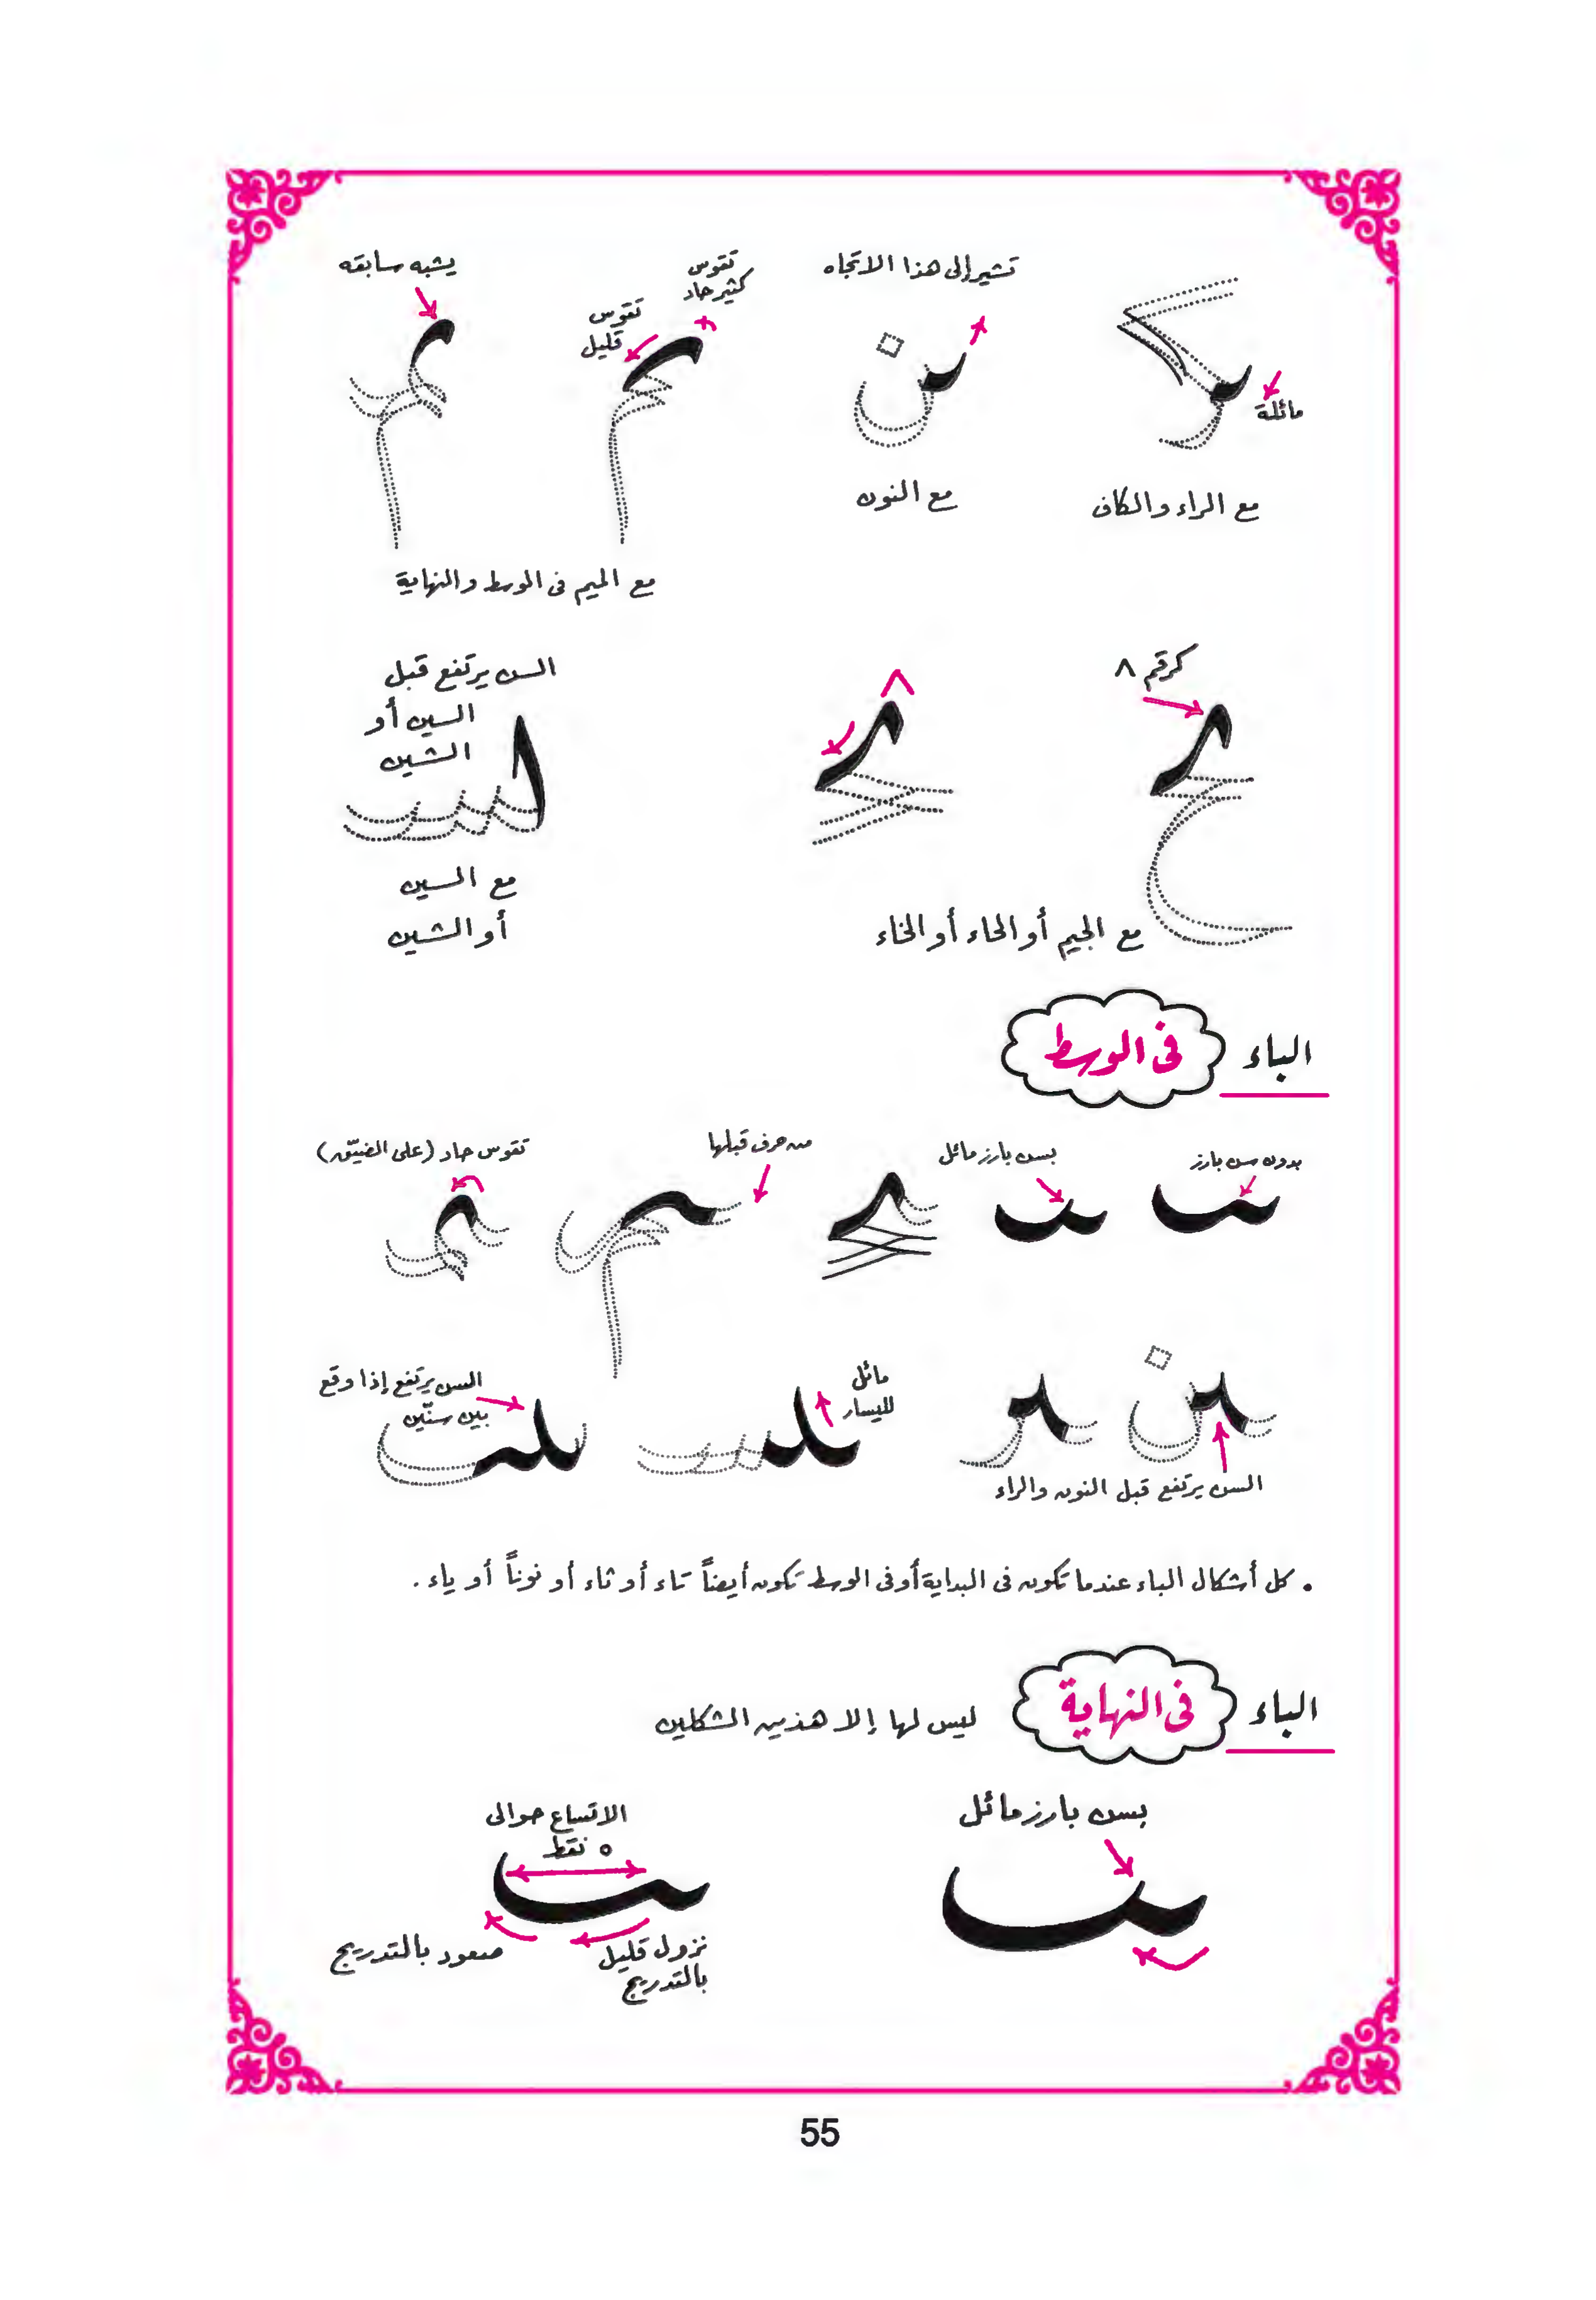 مائلة
مع الراء والكاف
تشير إلى هذا الاتجاه
مع النون
تقوس
كثير حاد
تقوس
قليل
يشبه سابقه
مع الميم فى الوسط والنهاية
كرقم ٨
٨
مع الجيم أو الحاء أو الخاء
السن يرتفع قبل
السين أو
الشين
مع السين
أو الشين
الباء فى الوسط
بدون سن بارز
بسن بارز مائل
من حرف قبلها
تقوس حاد (على الضيّق)
السن يرتفع قبل النون والراء
مائل
لليسار
السن يرتفع إذا وقع
بين سنّين
• كل أشكال الباء عندما تكون فى البداية أو فى الوسط تكون أيضاً تاء أو ثاء أو نوناً أو ياء .
الباء فى النهاية ليس لها إلا هذين الشكلين
بسن بارز مائل
الاتساع حوالى
٥ نقط
نزول قليل
بالتدريج
صعود بالتدريج
55